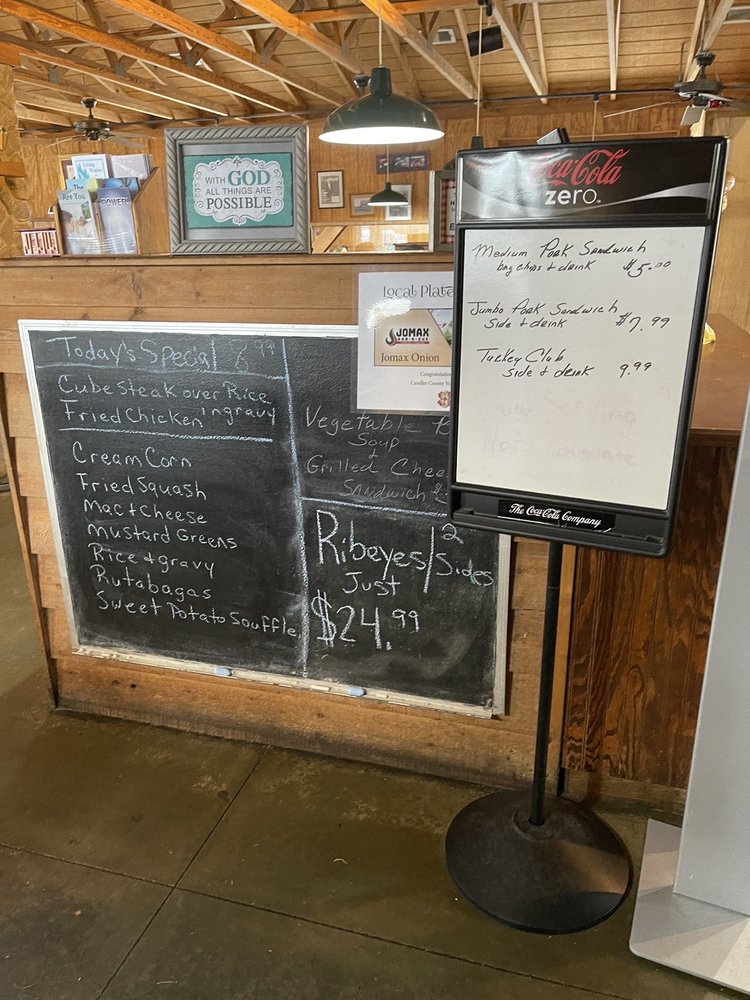 WITH GOD
ALL THINGS ARE
POSSIBLE
Are You
Today's Special 8.99
Cube Steak over Rice
Fried Chicken in gravy
Cream Corn
Fried Squash
Mac + Cheese
Mustard Greens
Rice + gravy
Rutabagas
Sweet Potato Souffle
Local Plate
JOMAX
BAR-B-QUE
Jomax Onion
Congratulations
Candler County
Vegetable
Soup
Grilled Chee
Sandwich
Ribeyes / 2
Sides
Just
$24.99
Coca-Cola
zero
Medium Pork Sandwich
bag chips + drink $5.00
Jumbo Pork Sandwich
Side + drink $7.99
Turkey Club
side + drink 9.99
The Coca-Cola Company